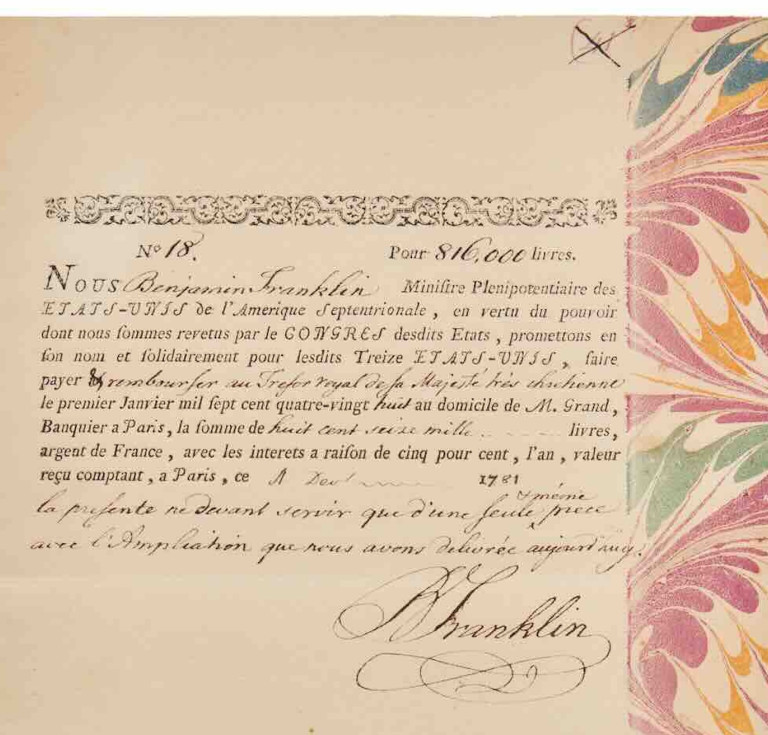 N° 18. Pour 816,000 livres.
NOUS Benjamin Franklin Ministre Plenipotentiaire des
ETATS-UNIS de l'Amerique Septentrionale, en vertu du pouvoir
dont nous sommes revetus par le CONGRES desdits Etats, promettons en
son nom et solidairement pour lesdits Treize ETATS-UNIS, faire
payer & rembourser au Tresor royal de sa Majesté très chretienne
le premier Janvier mil sept cent quatre-vingt huit au domicile de M. Grand,
Banquier a Paris, la somme de huit cent seize mille livres,
argent de France, avec les interets a raison de cinq pour cent, l'an, valeur
reçu comptant, a Paris, ce 1781
& même
la presente ne devant servir que d'une seule piece
avec l'Ampliation que nous avons delivrée aujourd'huy.
B Franklin